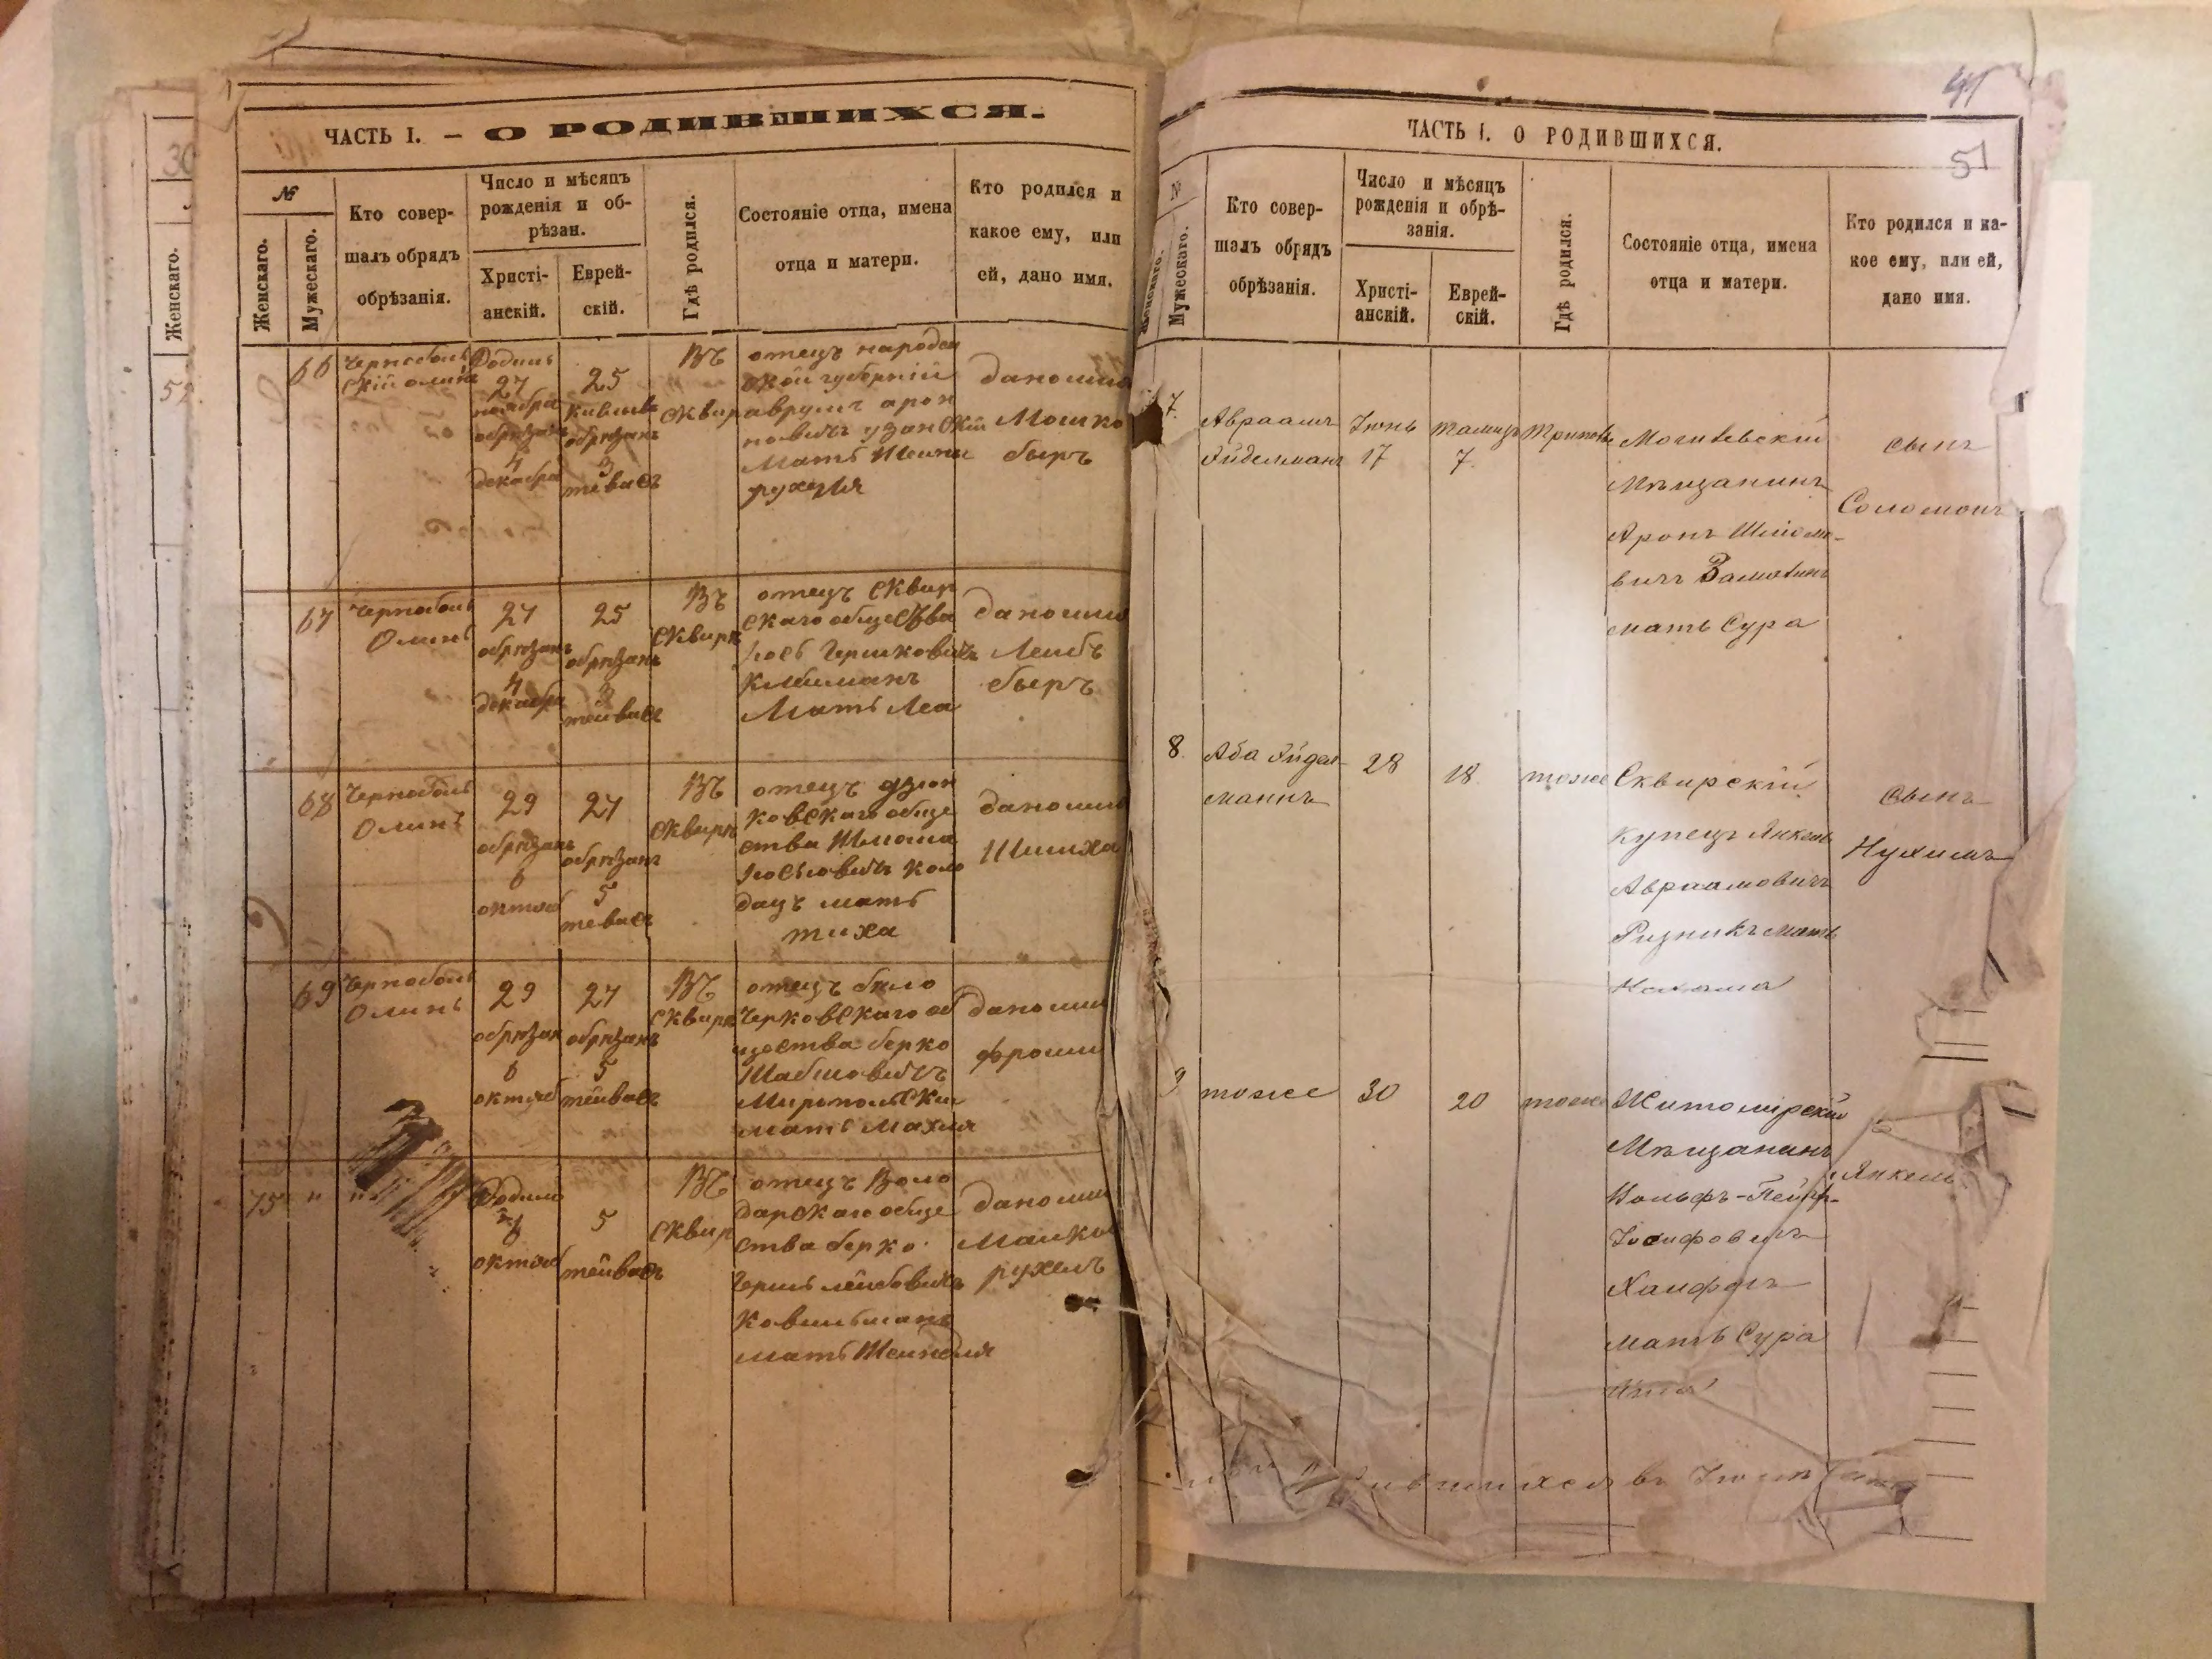 ЧАСТЬ I. — О РОДИВШИХСЯ.
№
Женскаго.
Мужескаго.
Кто совер-
шалъ обрядъ
обрѣзанія.
Число и мѣсяцъ
рожденія и об-
рѣзан.
Христі-
анскій.
Еврей-
скій.
Гдѣ родился.
Состояніе отца, имена
отца и матери.
Кто родился и
какое ему, или
ей, дано имя.
66
Чернобыль
скій олинъ
Родиль
27
ноябра
обрѣзанъ
4
декабра
25
кисльвъ
обрѣзанъ
3
тевасъ
Въ
Сквир
отецъ
ской губорніи
аврумъ арон
новичъ узанскій
Мать Шейна
рухля
даноимя
Мошко
беръ
67
Чернобыль
Олинъ
27
обрѣзанъ
4
декабра
25
обрѣзанъ
3
тейвасъ
Въ
Сквирѣ
отецъ Сквир
скаго общества
Іось Гершковичъ
Клейманъ
Мать Леа
даноимя
Лейбъ
беръ
68
Чернобыль
Олинъ
29
обрѣзанъ
6
октоб
27
обрѣзанъ
5
тевасъ
Въ
Сквирѣ
отецъ дзюн
ковскаго обще
ства Шлюма
Іосьовичъ Коло
дацъ мать
тиха
даноимя
Шимха
69
Чернобыль
Олинъ
29
обрѣзан
6
октоб
27
обрѣзанъ
5
тейвасъ
Въ
Сквирѣ
отецъ бѣло
Черковскаго об
щества берко
Шабшовичъ
Миропольски
мать Махля
даноимя
фроим
75
"
"
Родиль
6
октоб
5
тейвасъ
Въ
Сквир
отецъ Воло
дарскаго обще
ства берко
Гершъ лейбовичъ
Ковильманъ
мать Шейндля
даноимя
Малка
рухель
Женскаго.
ЧАСТЬ I. О РОДИВШИХСЯ.
51
№
Женскаго.
Мужескаго.
Кто совер-
шалъ обрядъ
обрѣзанія.
Число и мѣсяцъ
рожденія и обрѣ-
занія.
Христі-
анскій.
Еврей-
скій.
Гдѣ родился.
Состояніе отца, имена
отца и матери.
Кто родился и ка-
кое ему, или ей,
дано имя.
7.
Авраамъ
Айдельманъ
Іюнь
17
тамузъ
7.
Могилевскій
Мѣщанинъ
Аронъ Шліомо-
вичъ Замотинъ
мать Сура
сынъ
Соломонъ
8.
Аба Айдел-
манъ
28
18.
тоже
Сквирскій
купецъ Янкель
Авраамовичъ
Ризникъ мать
Нахама
сынъ
Нухимъ
9
тоже
30
20
тоже
Житомірскій
Мѣщанинъ
Вольфъ-Пейсах-
Іосифовичъ
мать Сура
Янкель
родившихся въ Іюнѣ